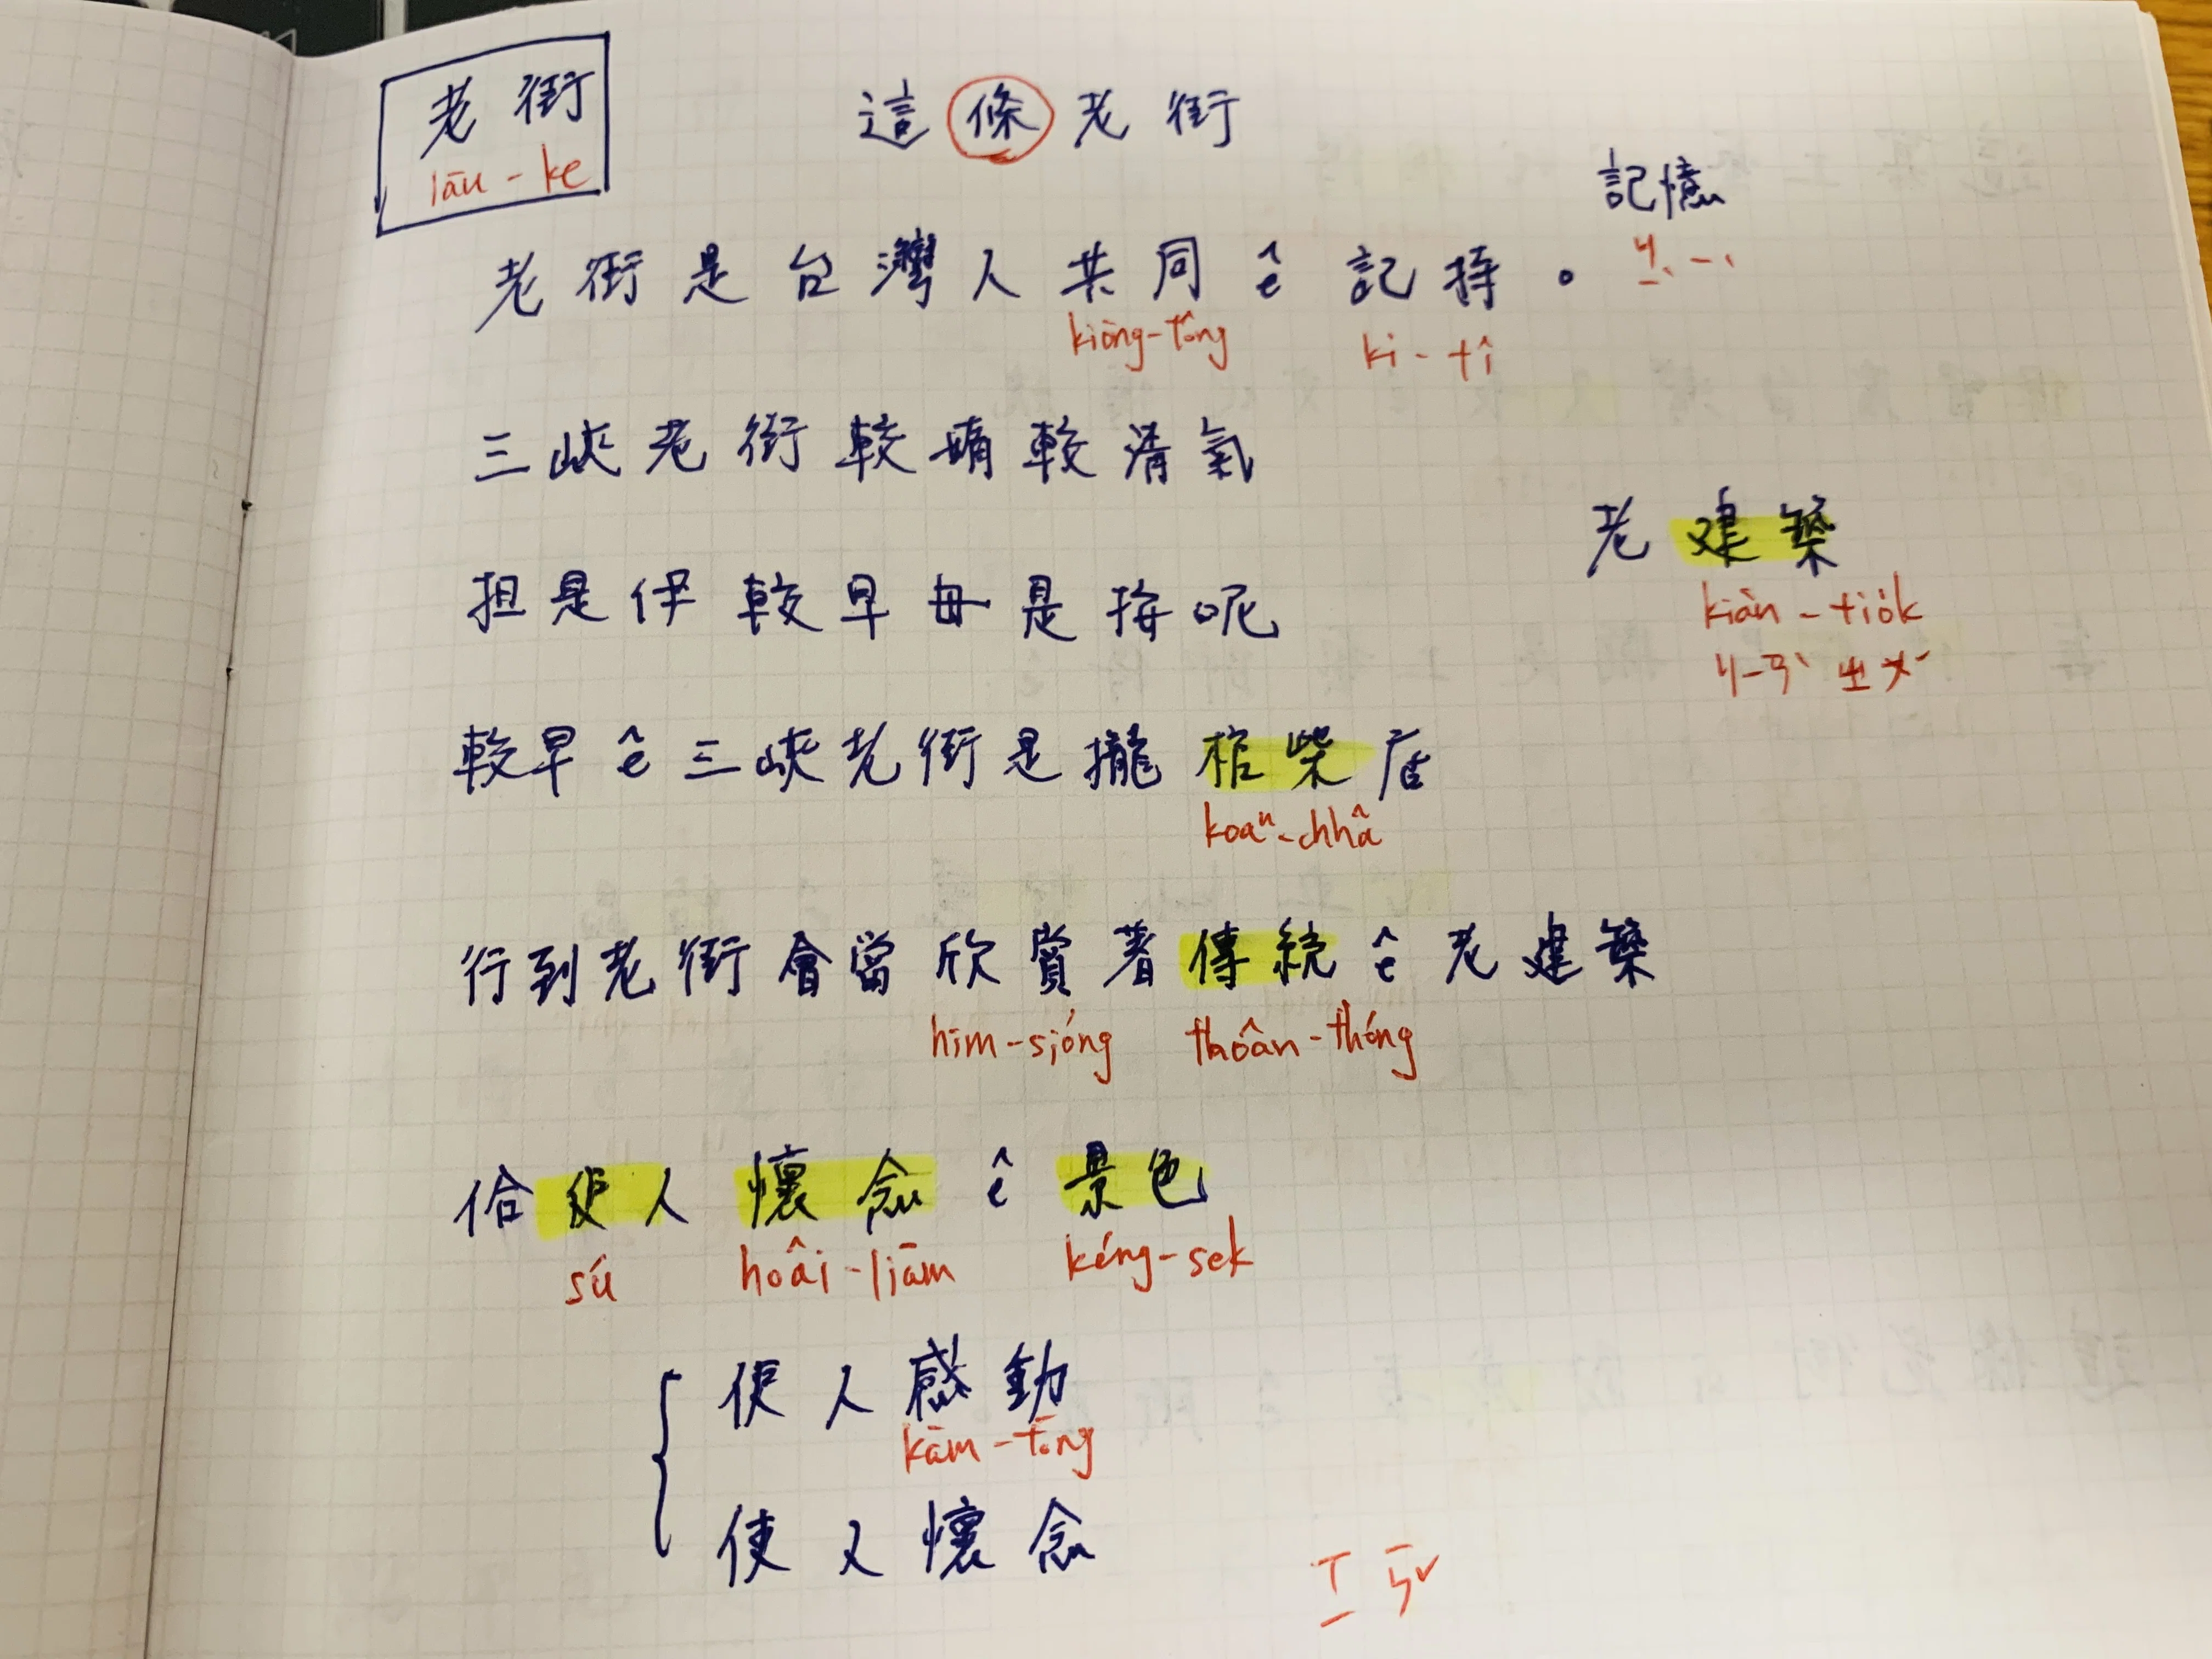 老街
lāu-ke
這條老街
記憶
ㄐㄧˋ ㄧˋ
老街是台灣人共同ê記持。
kiōng-tông
kì-tî
三峽老街較媠較清氣
老建築
kiàn-tiok
ㄐㄧㄢˋ ㄓㄨˊ
担是伊較早毋是按呢
較早ê三峽老街是攏棺柴店
koaⁿ-chhâ
行到老街會當欣賞著傳統ê老建築
him-sióng
thoân-thóng
佮使人懷念ê景色
sú
hoâi-liām
kéng-sek
使人感動
kám-tōng
使人懷念